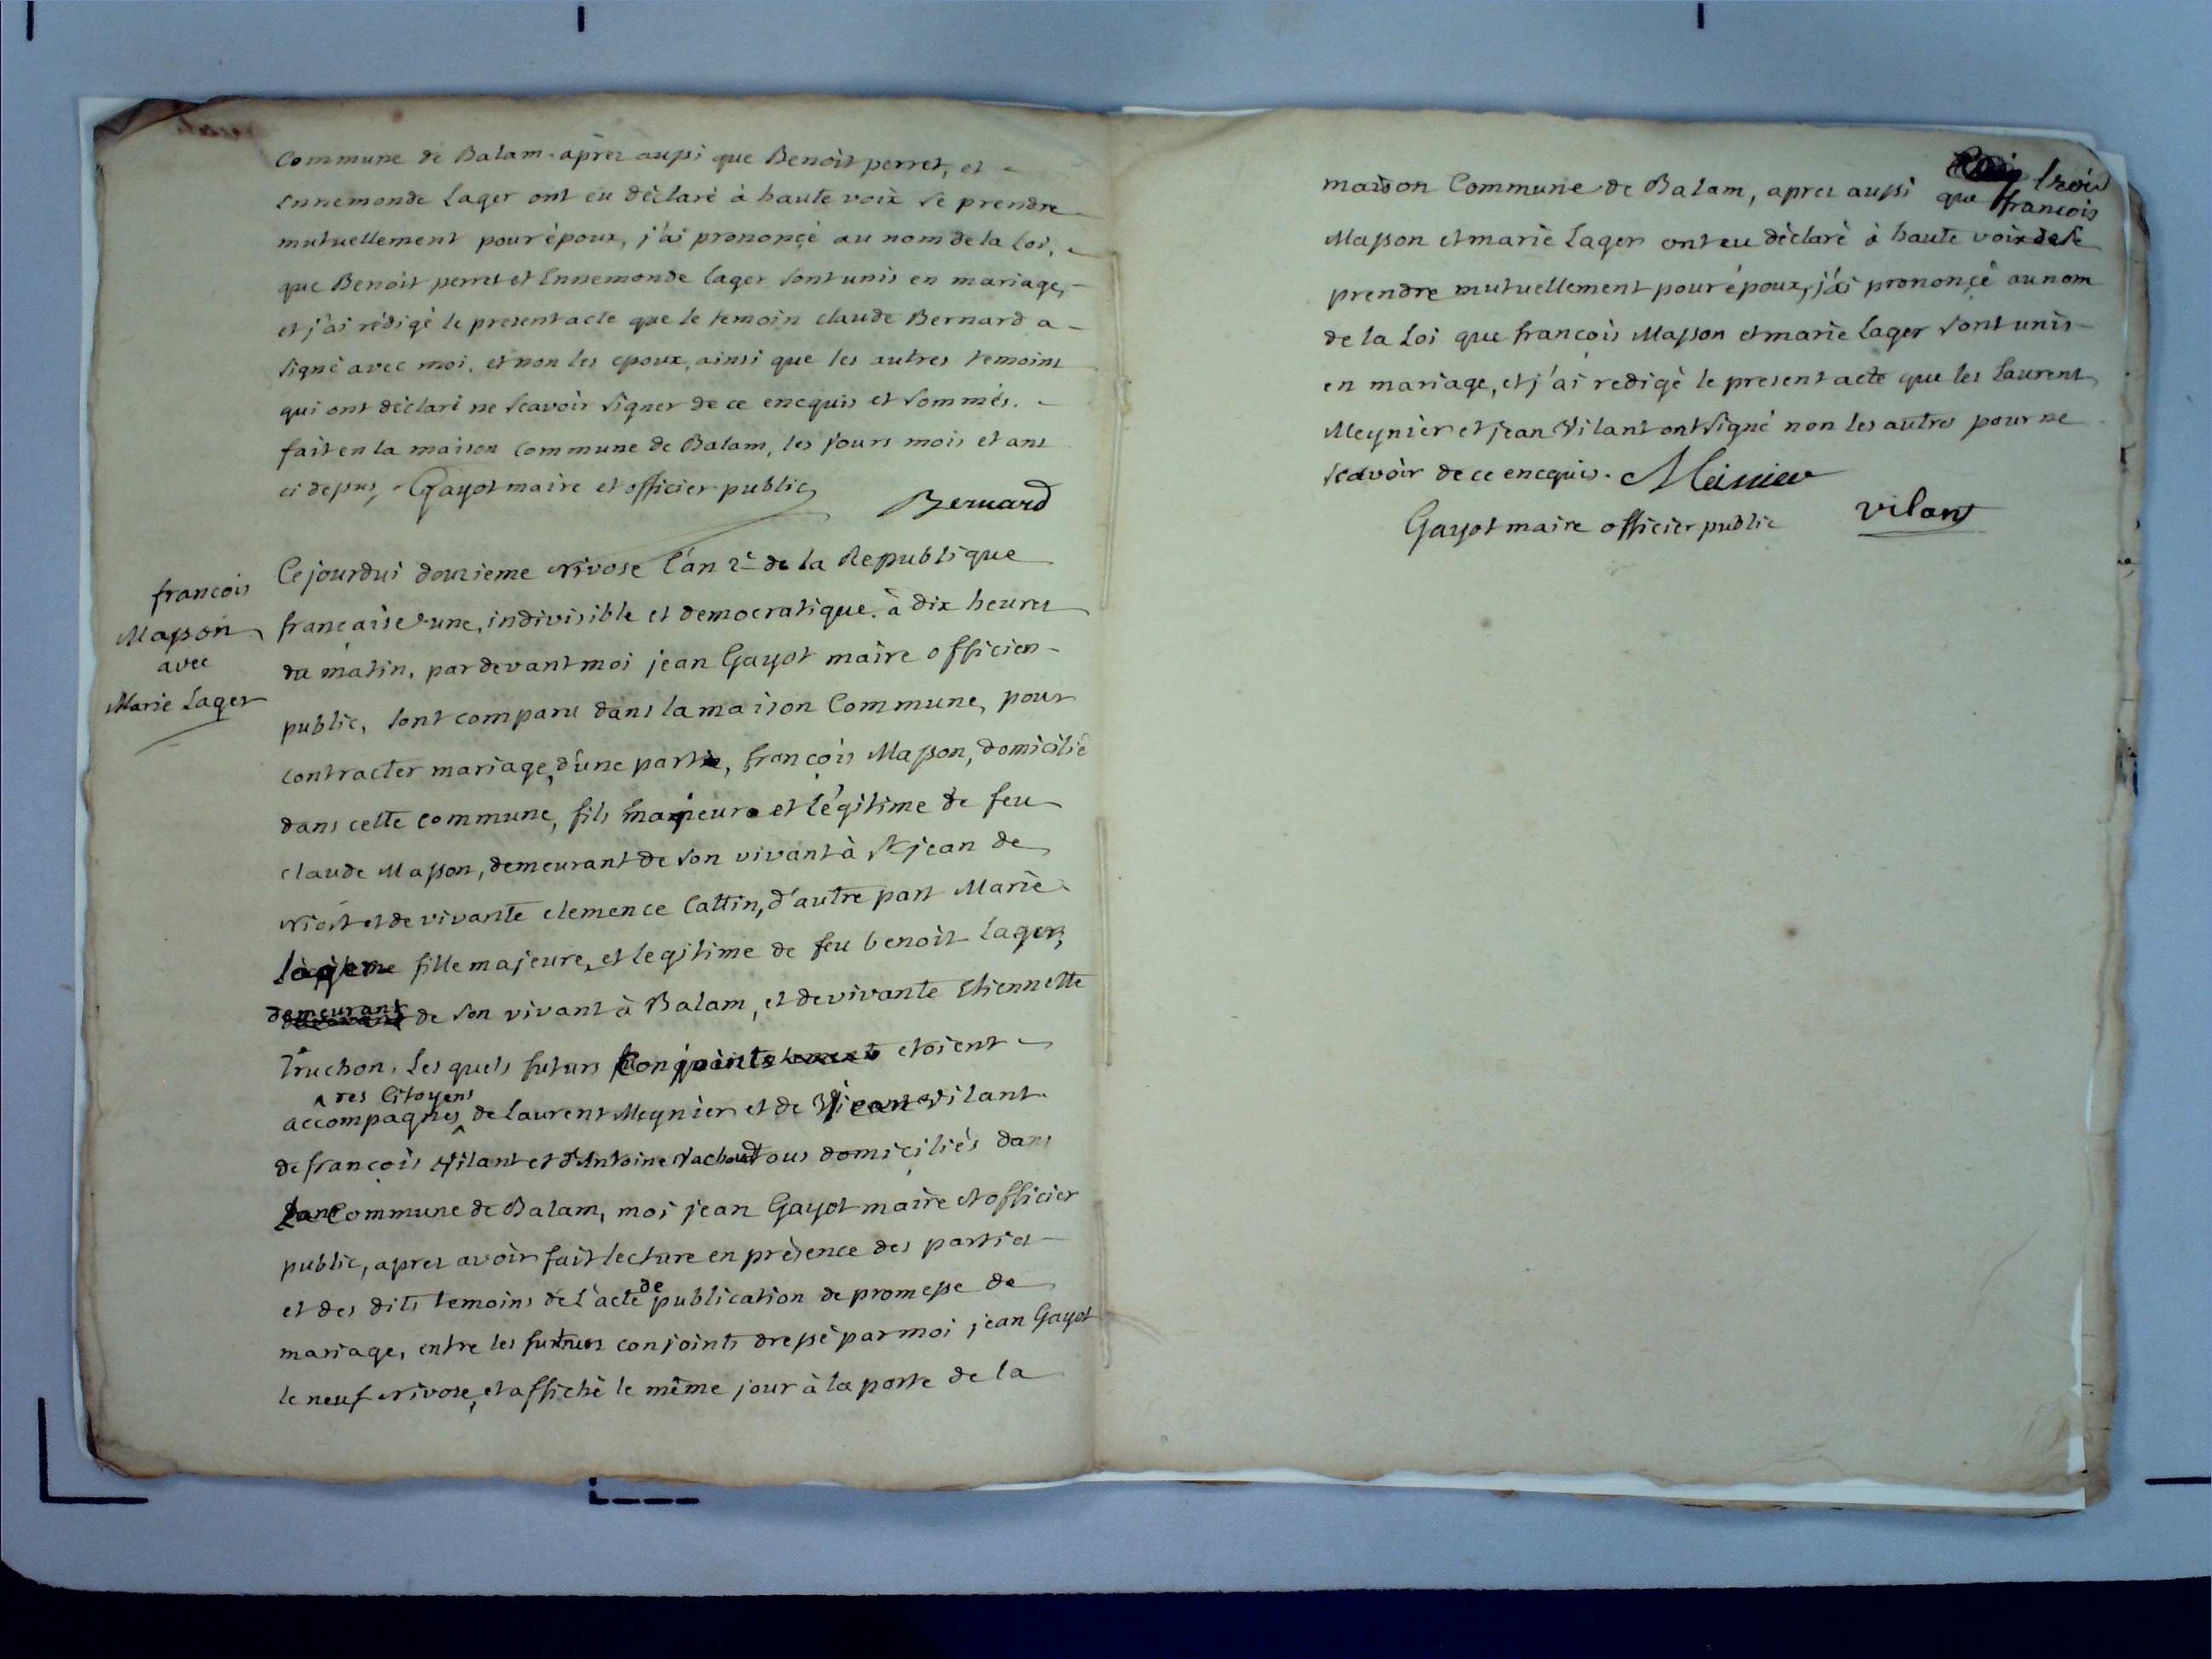 Commune de Balam. après aussi que Benoit perret, et
Ennemonde Lager ont eu déclaré à haute voix se prendre
mutuellement pour époux, j'ai prononçé au nom de la Loi,
que Benoit perret et Ennemonde Lager sont unis en mariage,
et j'ai rédigé le present acte que le temoin claude Bernard a
signé avec moi, et non les epoux, ainsi que les autres temoins
qui ont déclaré ne scavoir signer de ce encquis et sommés.
fait en la maison commune de Balam, les jours mois et ans
ci dessus, Gayot maire et officier public
Bernard
françois
Masson
avec
Marie Lager
Cejourdui douzieme Nivose l'an 2e de la Republique
française une, indivisible et democratique. à dix heures
du matin, pardevant moi jean Gayot maire officier
public, sont comparu dans la maison Commune, pour
contracter mariage, d'une part, françois Masson, domicilié
dans cette commune, fils majeur et légitime de feu
claude Masson, demeurant de son vivant à St jean de
Niost et de vivante clemence Cattin, d'autre part Marie
lager fille majeure, et legitime de feu benoit Lager,
demeurant de son vivant à Balam, et de vivante Etiennette
Truchon, Les quels futurs Conjoints etoient
accompagnés des Citoyens de Laurent Meynier et de jean Vilant
de françois Vilant et d'Antoine Vachoud tous domiciliés dans
la Commune de Balam, moi jean Gayot maire et officier
public, apres avoir fait lecture en présence des parties
et des dits temoins de L'acte de publication de promesse de
mariage, entre les futurs conjoints dressé par moi jean Gayot
le neuf Nivose, et affiché le même jour à la porte de la
trois
maison Commune de Balam, apres aussi que françois
Masson et marie Lager ont eu déclaré à haute voix de se
prendre mutuellement pour époux, j'ai prononçé au nom
de la Loi que françois Masson et marie Lager sont unis
en mariage, et j'ai redigé le present acte que les Laurent
Meynier et jean Vilant ont signé non les autres pour ne
scavoir de ce encquis. Meinier
Gayot maire officier public vilant